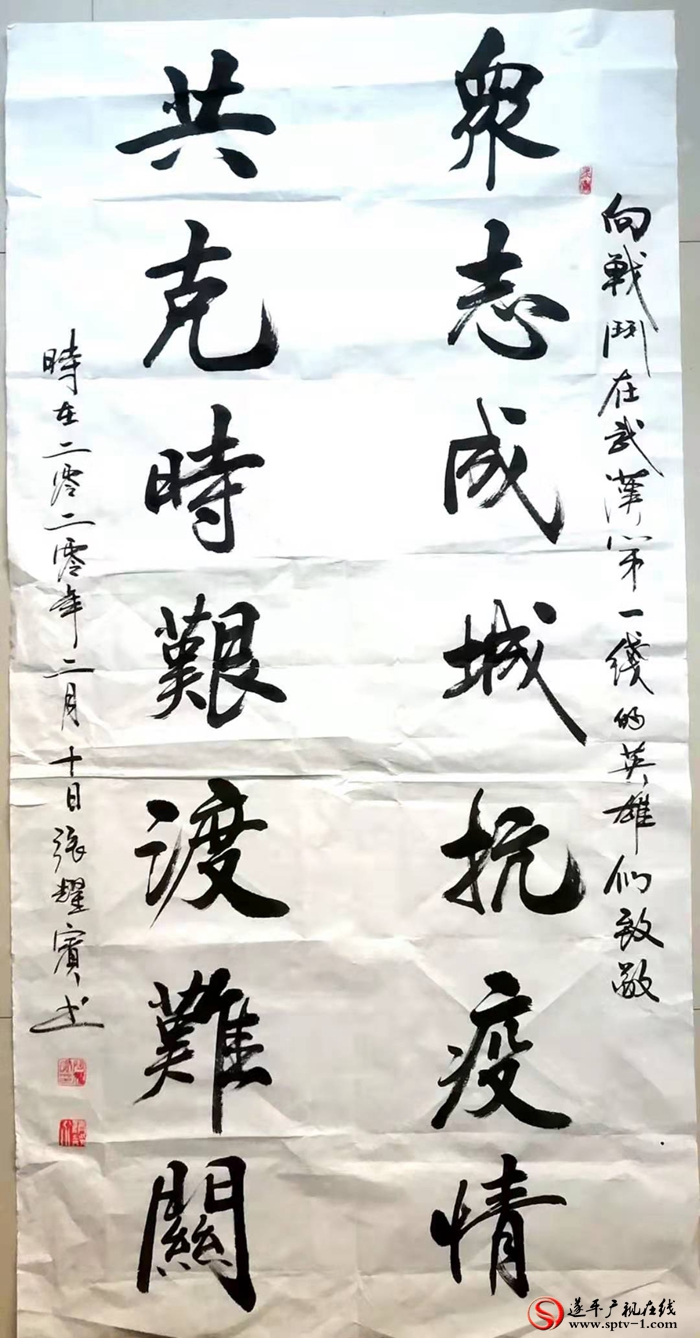 向戰鬥在武漢第一線的英雄們致敬
衆志成城抗疫情
共克時艱渡難關
時在二零二零年二月十日張耀賓書
遂平广视在线
www.sptv-1.com